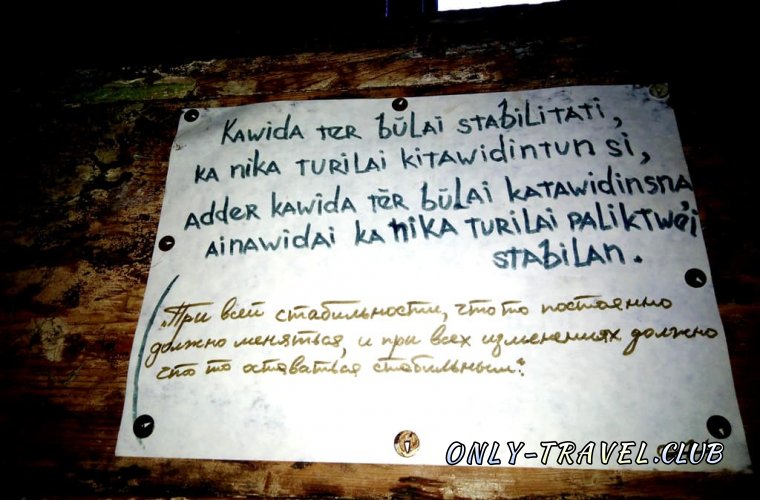 Kawida tēr būlai stabilitāti,
ka nika turilai kitawidintun si,
adder kawida tēr būlai katawidinsna
ainawidai ka nika turilai paliktwēi
stabilan.
„При всей стабильности, что то постоянно
должно меняться, и при всех изменениях должно
что то оставаться стабильным“.
ONLY-TRAVEL.CLUB